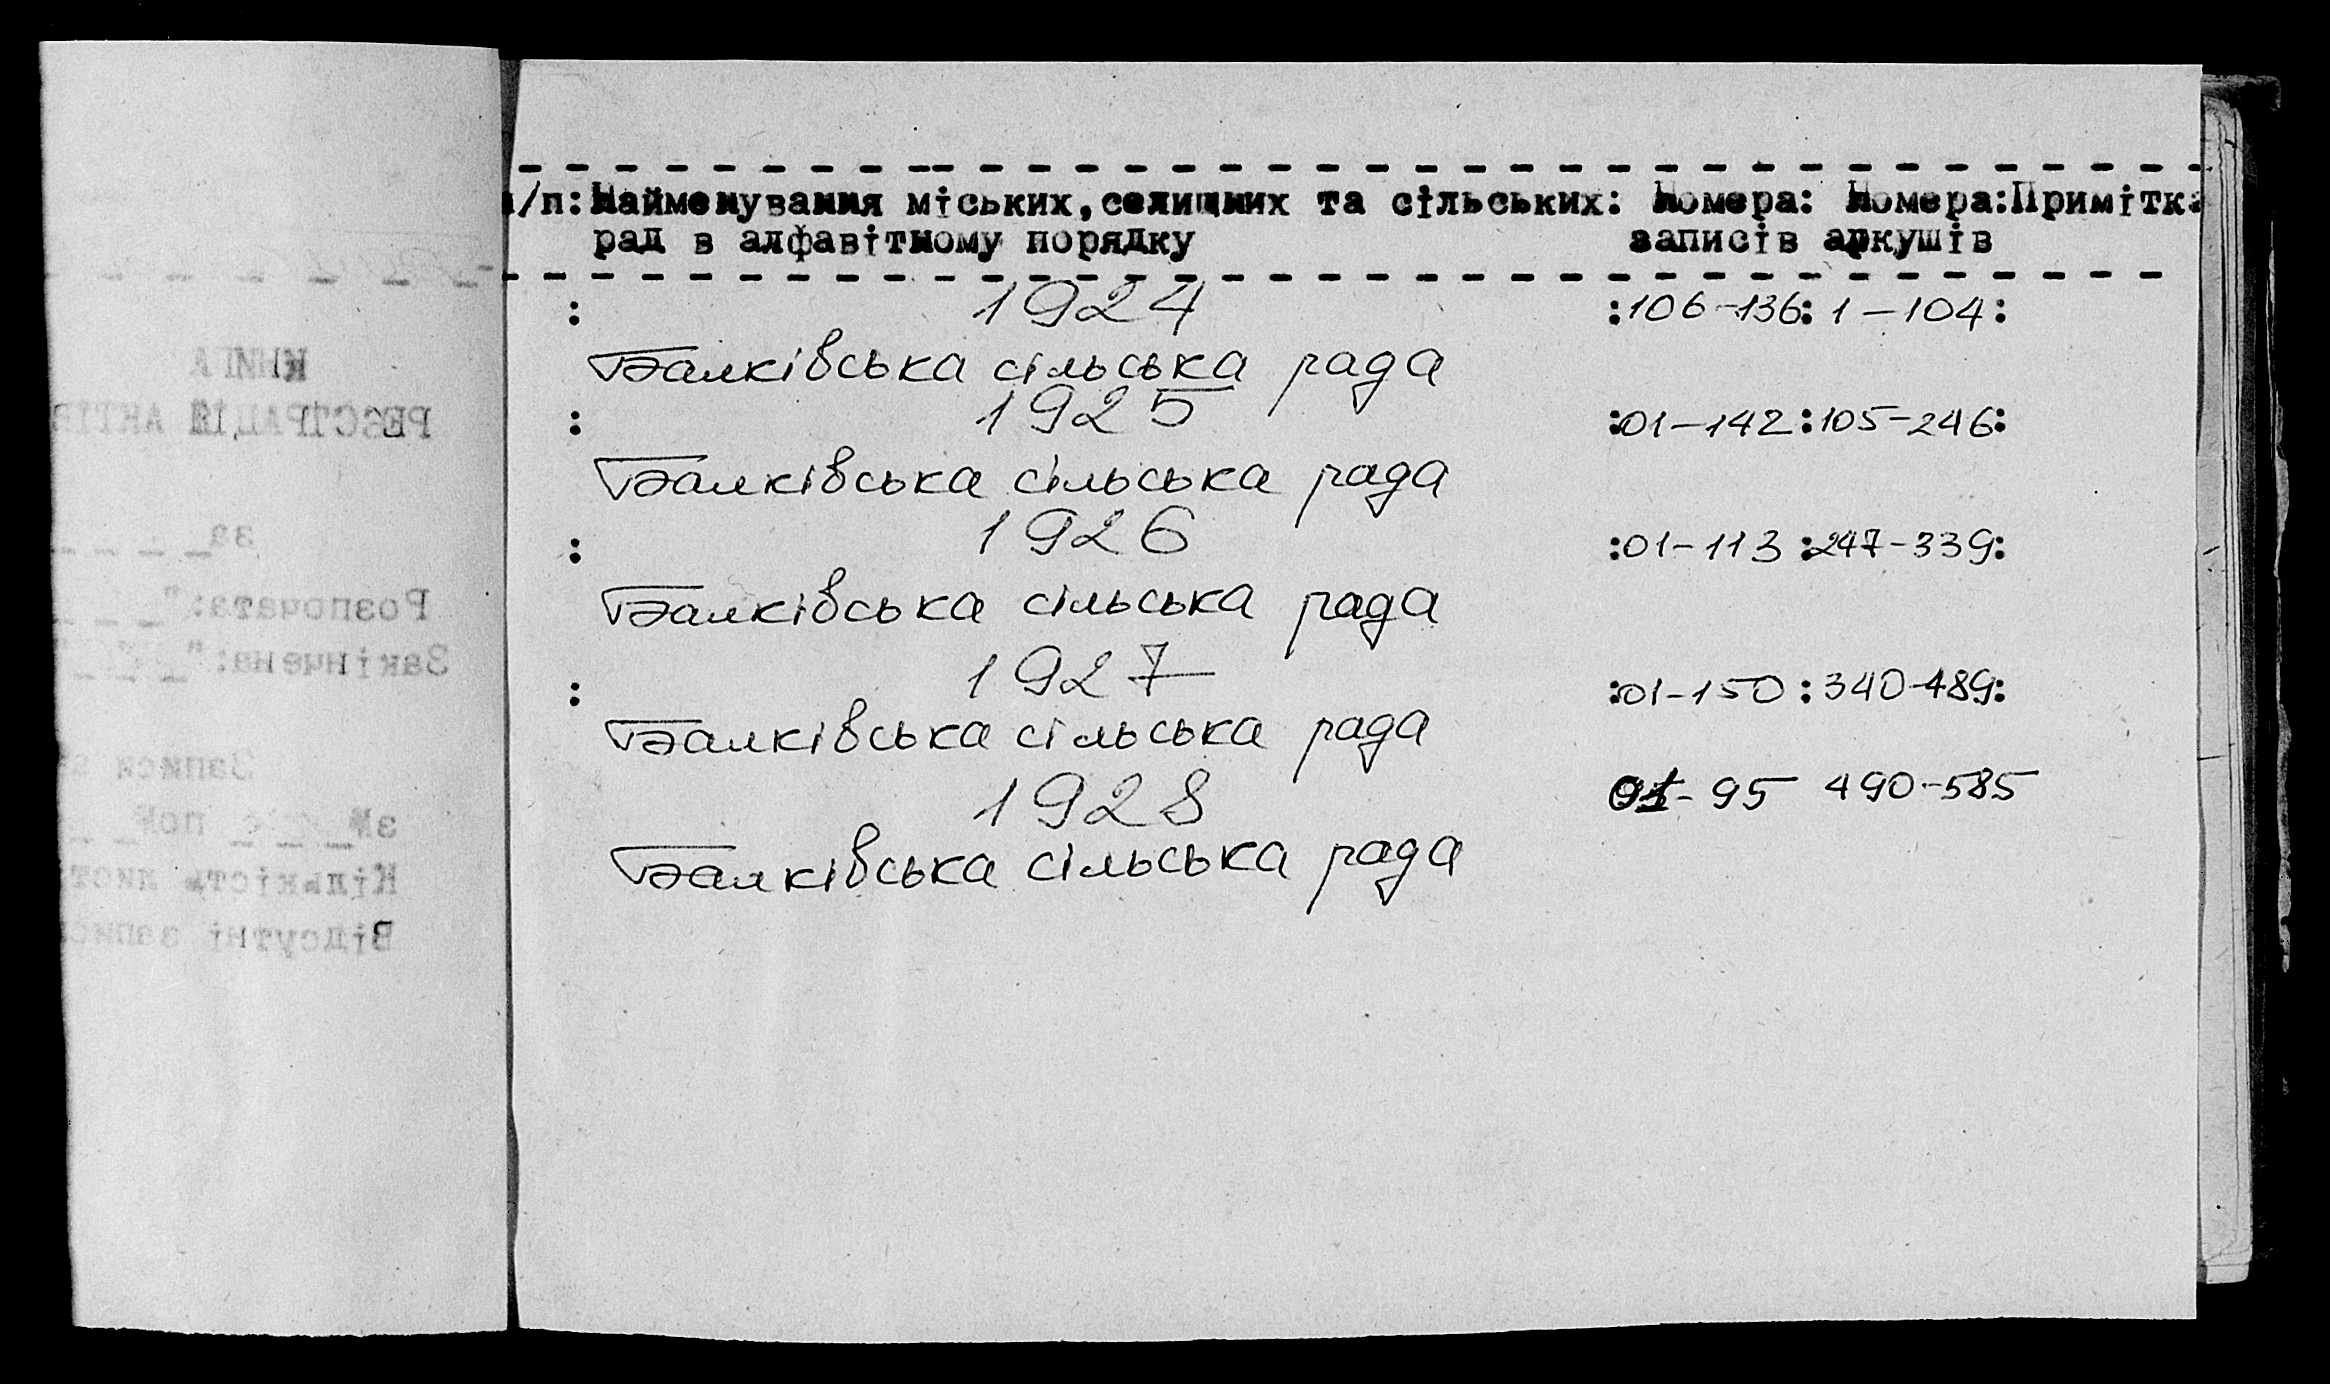 п/п: Найменування міських, селищних та сільських: Номера: Номера: Примітка
рад в алфавітному порядку записів аркушів
: 1924 :106-136: 1-104:
Балківська сільська рада
: 1925 :01-142:105-246:
Балківська сільська рада
: 1926 :01-113:247-339:
Балківська сільська рада
: 1927 :01-150:340-489:
Балківська сільська рада
1928 01-95 490-585
Балківська сільська рада
КНИГА
РЕЄСТРАЦІЇ АКТІВ
за
Розпочата: "
Закінчена: "
Записи
з№ по№
Кількість лист
Відсутні запис